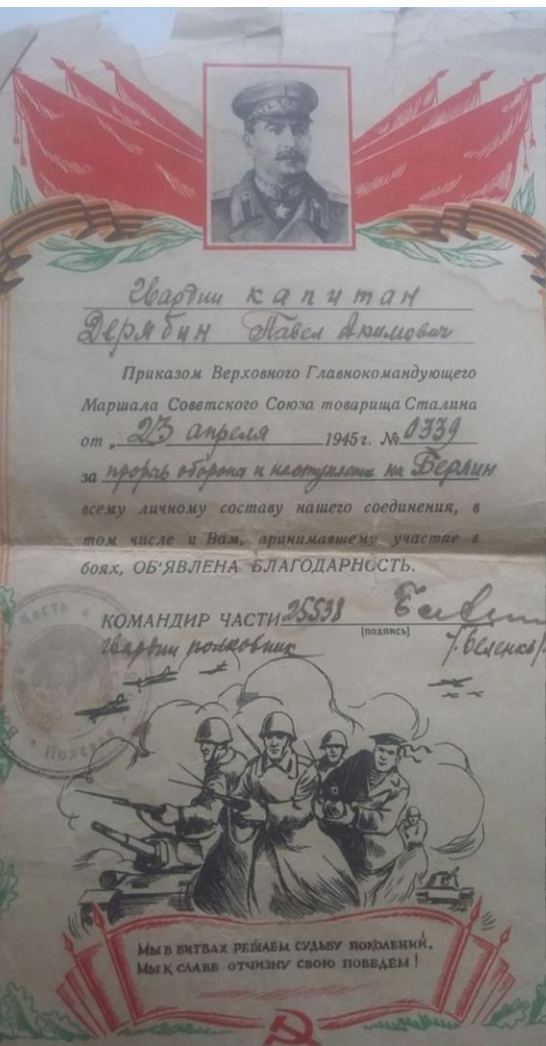 Гвардии капитан
Дерябин Павел Акимович
Приказом Верховного Главнокомандующего
Маршала Советского Союза товарища Сталина
от „23 апреля 1945 г. № 0339
за прорыв оборона и наступление на Берлин
всему личному составу нашего соединения, в
том числе и Вам, принимавшему участие в
боях, ОБ'ЯВЛЕНА БЛАГОДАРНОСТЬ.
КОМАНДИР ЧАСТИ 25538
(подпись)
гвардии полковник /Беленко/
ЧАСТЬ
Полевая
МЫ В БИТВАХ РЕШАЕМ СУДЬБУ ПОКОЛЕНИЙ,
МЫ К СЛАВЕ ОТЧИЗНУ СВОЮ ПОВЕДЕМ!